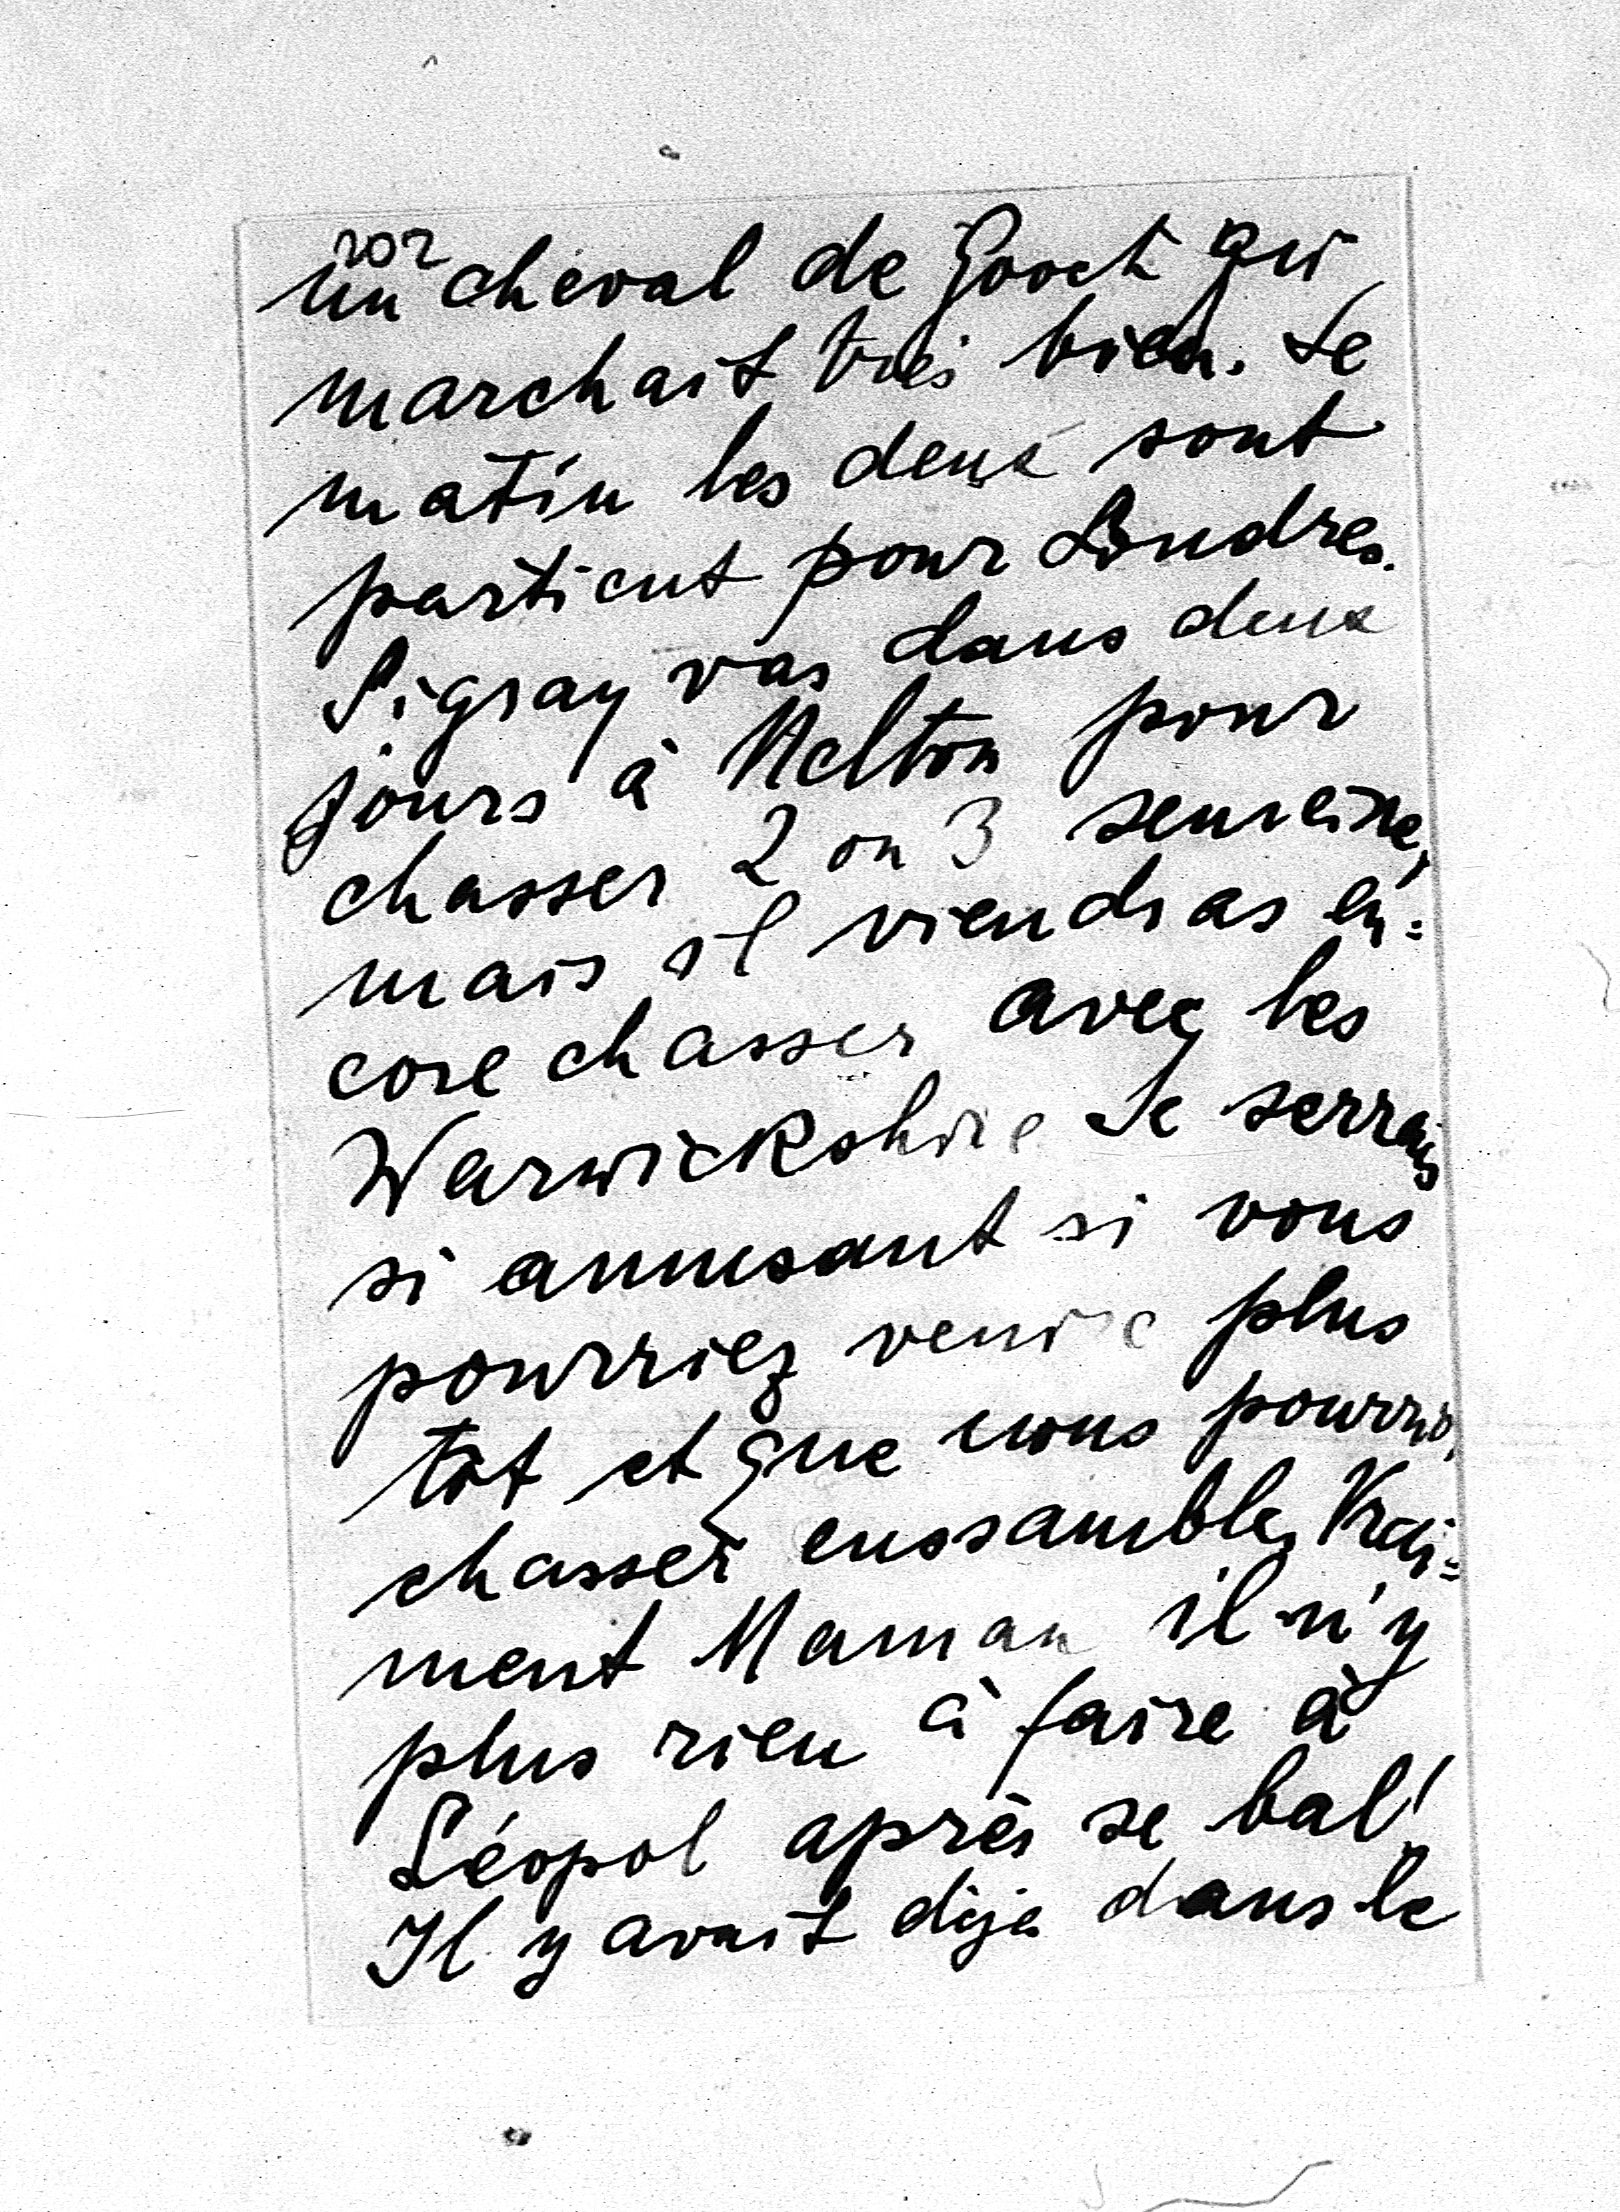 202
un cheval de Gooch qui
marchait très bien. Se
matin les deux sont
particut pour Londres.
Sigray vas dans deux
jours à Melton pour
chasser 2 ou 3 semeine,
mais il viendras en=
core chasser avec les
Warwickshire Se serrais
si amusant si vous
pourriez venire plus
tôt et que nous pourrio,
chasser enssamble, Vrai=
ment Maman il n'y
plus rien à faire à
Léopol après se bal!
Il y avait dèja dans le